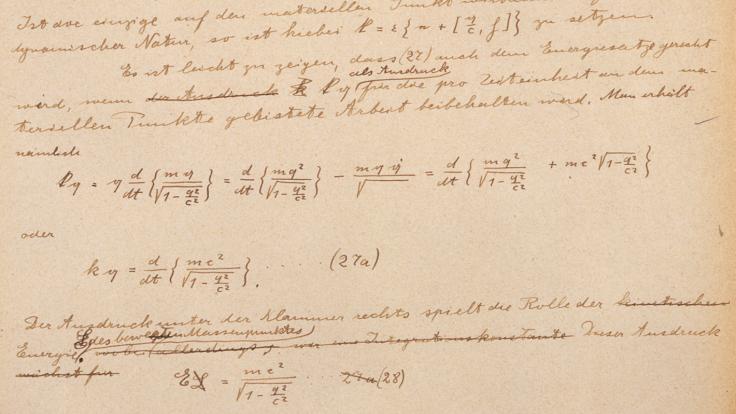 Ist die einzige auf den materiellen Punkt
dynamischer Natur, so ist hiebei k = ε{n + [q/c, f]} zu setzen.
Es ist leicht zu zeigen, dass (27) auch dem Energiesatze gerecht
als Ausdruck
wird, wenn der Ausdruck k q für die pro Zeiteinheit an dem ma-
teriellen Punkte geleistete Arbeit beibehalten wird. Man erhält
nämlich
k q = q d/dt { m q / √(1 - q²/c²) } = d/dt { m q² / √(1 - q²/c²) } - m q q̇ / √ = d/dt { m q² / √(1 - q²/c²) + m c² √(1 - q²/c²) }
oder
k q = d/dt { m c² / √(1 - q²/c²) } . . . . . (27a)
Der Ausdruck unter der Klammer rechts spielt die Rolle der kinetischen
des bewegten Massenpunktes
Energie vorbei (allerdings, war eine Integrationskonstante Dieser Ausdruck
wächst für
E L = m c² / √(1 - q²/c²) . . 27a (28)